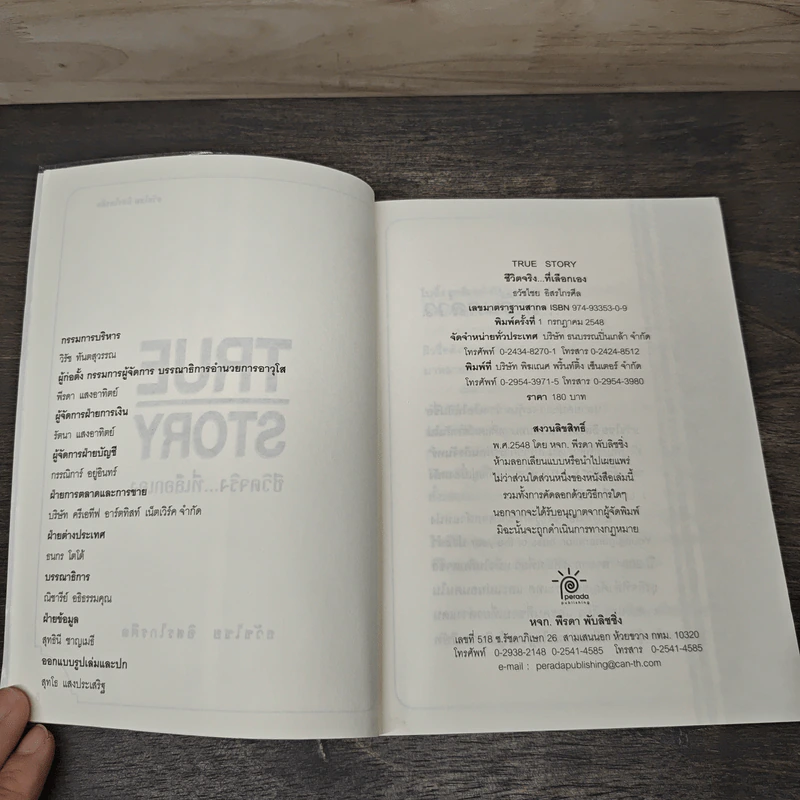 กรรมการบริหาร
วิรัช ทันตสุวรรณ
ผู้ก่อตั้ง กรรมการผู้จัดการ บรรณาธิการอำนวยการอาวุโส
พีรดา แสงอาทิตย์
ผู้จัดการฝ่ายการเงิน
รัตนา แสงอาทิตย์
ผู้จัดการฝ่ายบัญชี
กรรณิการ์ อยู่อินทร์
ฝ่ายการตลาดและการขาย
บริษัท ครีเอทีฟ อาร์ตทิสท์ เน็ตเวิร์ค จำกัด
ฝ่ายต่างประเทศ
ธนกร โตโต้
บรรณาธิการ
ณิชารีย์ อธิธรรมคุณ
ฝ่ายข้อมูล
สุทธินี ชาญเมธี
ออกแบบรูปเล่มและปก
สุทโธ แสงประเสริฐ
TRUE STORY
ชีวิตจริง...ที่เลือกเอง
ธวัชไชย อิสรไกรศีล
เลขมาตราฐานสากล ISBN 974-93353-0-9
พิมพ์ครั้งที่ 1 กรกฎาคม 2548
จัดจำหน่ายทั่วประเทศ บริษัท ธนบรรณปิ่นเกล้า จำกัด
โทรศัพท์ 0-2434-8270-1 โทรสาร 0-2424-8512
พิมพ์ที่ บริษัท พิฆเณศ พริ้นท์ติ้ง เซ็นเตอร์ จำกัด
โทรศัพท์ 0-2954-3971-5 โทรสาร 0-2954-3980
ราคา 180 บาท
สงวนลิขสิทธิ์
พ.ศ.2548 โดย หจก. พีรดา พับลิชชิ่ง
ห้ามลอกเลียนแบบหรือนำไปเผยแพร่
ไม่ว่าส่วนใดส่วนหนึ่งของหนังสือเล่มนี้
รวมทั้งการคัดลอกด้วยวิธีการใดๆ
นอกจากจะได้รับอนุญาตจากผู้จัดพิมพ์
มิฉะนั้นจะถูกดำเนินการทางกฎหมาย
perada
publishing
หจก. พีรดา พับลิชชิ่ง
เลขที่ 518 ซ.รัชดาภิเษก 26 สามเสนนอก ห้วยขวาง กทม. 10320
โทรศัพท์ 0-2938-2148 0-2541-4585 โทรสาร 0-2541-4585
e-mail : peradapublishing@can-th.com